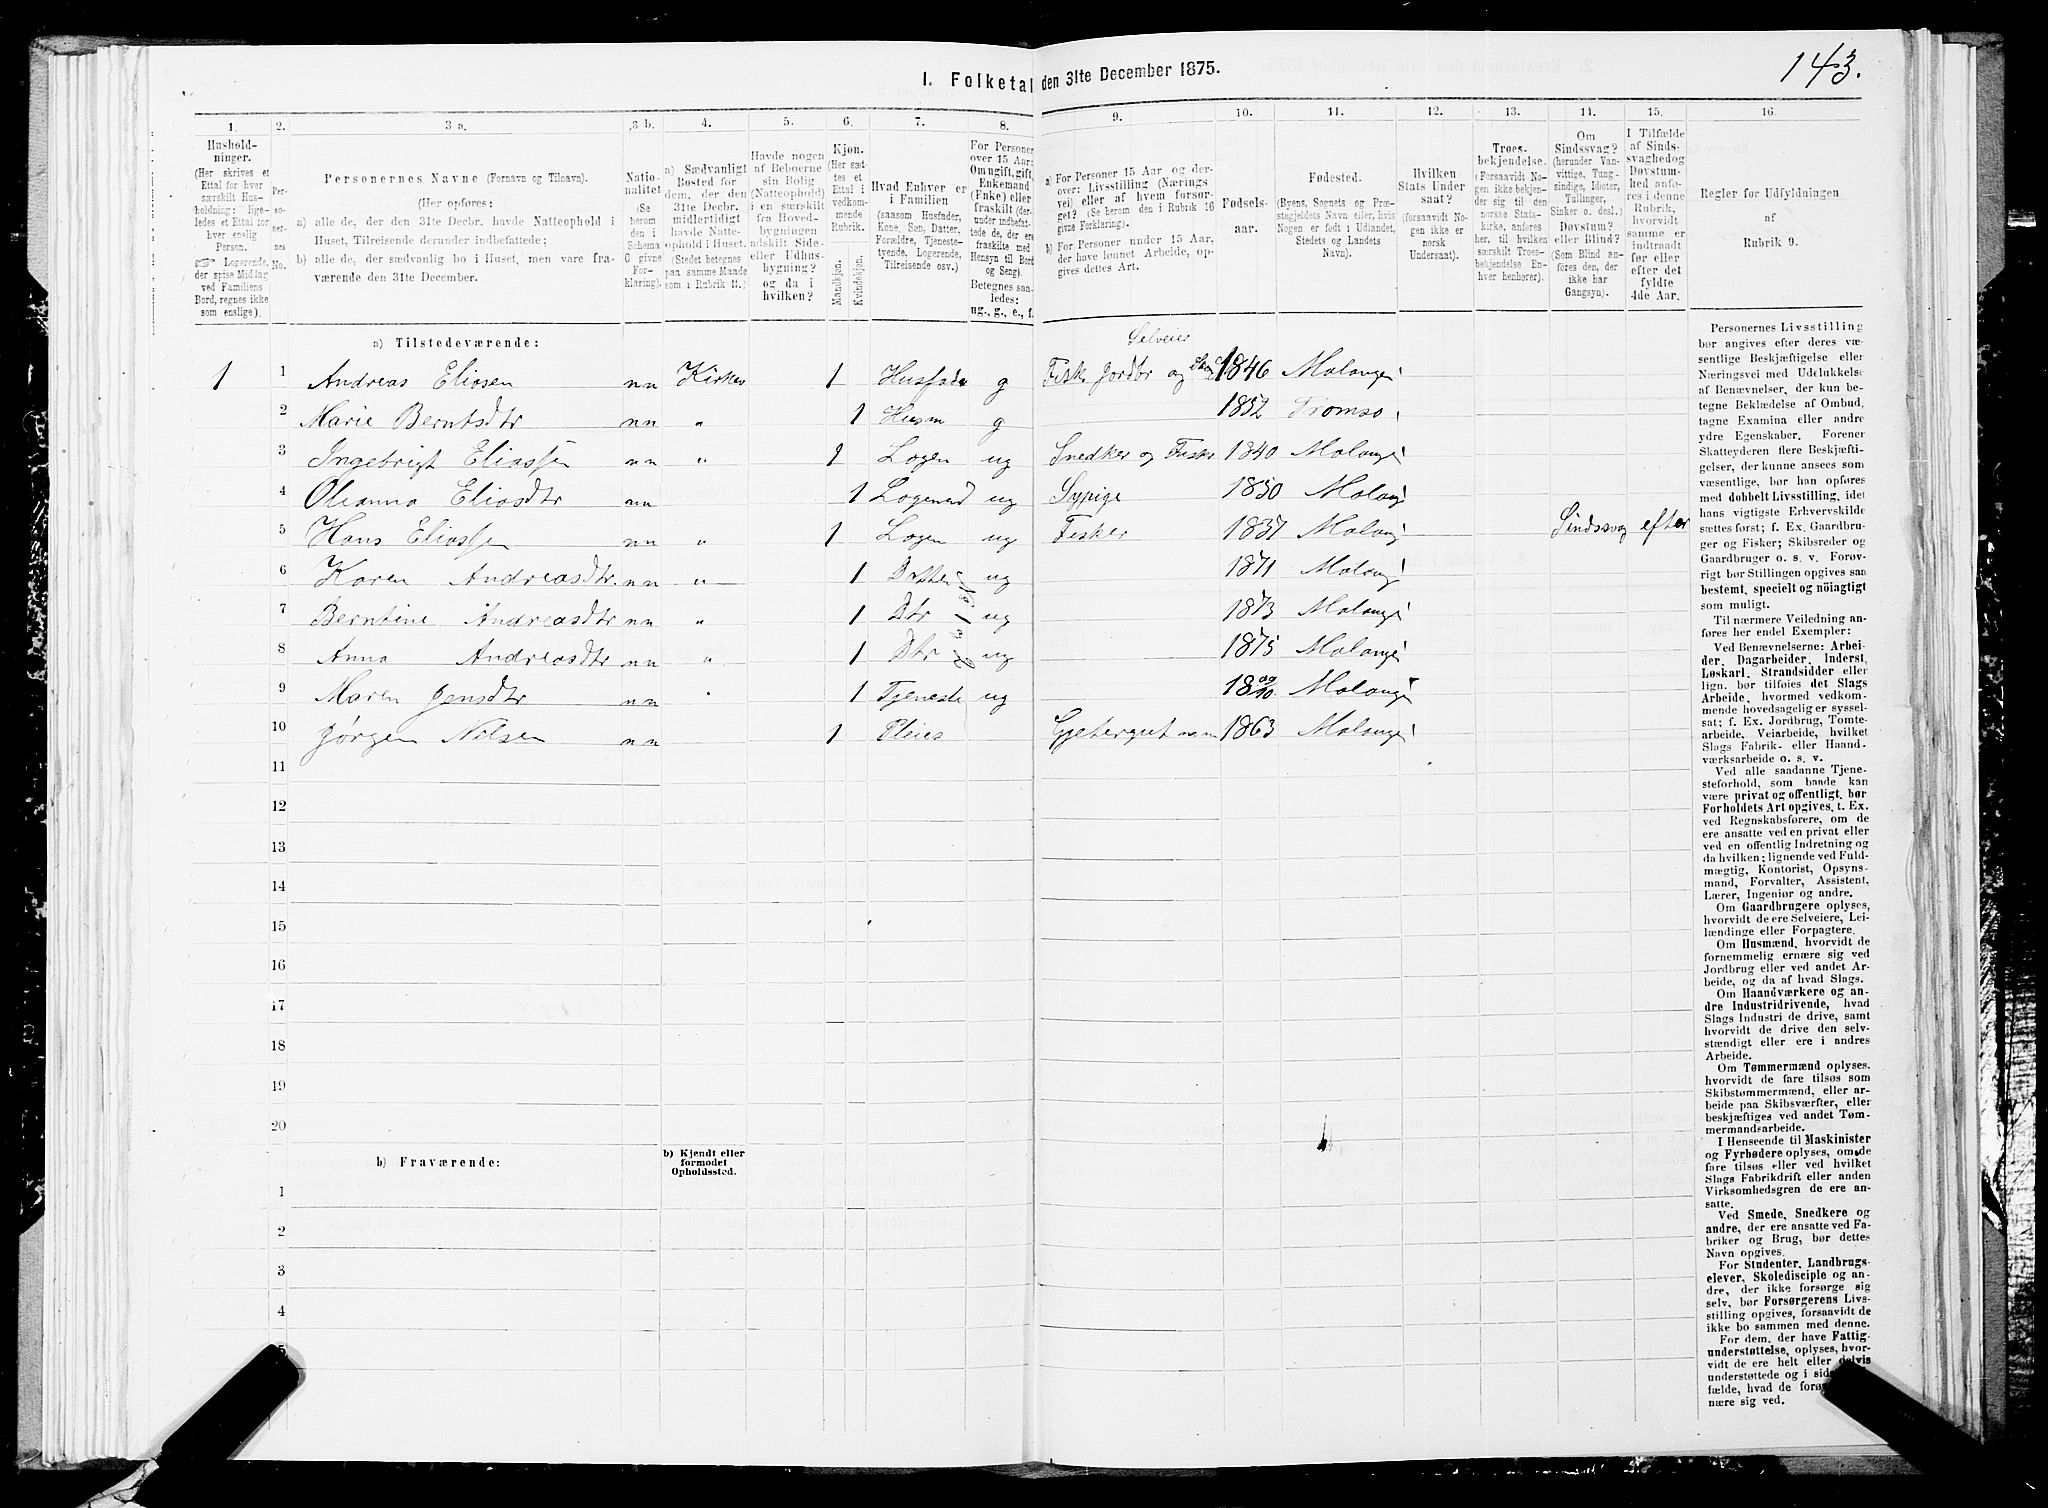 143.
I. Folketal den 31te December 1875.
1. 2. 3 a. 3 b. 4. 5. 6. 7. 8. 9. 10. 11. 12. 13. 14. 15. 16.
Hushold-
ninger.
(Her skrives et
Ettal for hver
særskilt Hus-
holdning; lige-
ledes et Ettal for
hver enslig
Person.
☞ Logerende,
der spise Middag
ved Familiens
Bord, regnes ikke
som enslige).
Per-
so-
ner-
nes
No.
Personernes Navne (Fornavn og Tilnavn).
(Her opføres:
a) alle de, der den 31te Decbr. havde Natteophold i
Huset, Tilreisende derunder indbefattede;
b) alle de, der sædvanlig bo i Huset, men vare fra-
værende den 31te December.
Natio-
nalitet
(Se
herom
den i
Schema
G givne
For-
klaring).
a) Sædvanligt
Bosted for
dem, der den
31te Decbr.
midlertidigt
havde Natte-
ophold i Huset.
(Stedet betegnes
paa samme Maade
som i Rubrik 11.)
Havde nogen
af Beboerne
sin Bolig
(Natteophold)
i en særskilt
fra Hoved-
bygningen
adskilt Side-
eller Udhus-
bygning?
og da i
hvilken?
Kjøn.
(Her sæt-
tes et
Ettal i
vedkom-
mende
Rubrik.
Mandkjøn.
Kvindekjøn.
Hvad Enhver er
i Familien
(saasom Husfader,
Kone, Søn, Datter,
Forældre, Tjeneste-
tyende, Logerende,
Tilreisende osv.)
For Personer
over 15 Aar:
Om ugift, gift,
Enkemand
(Enke) eller
fraskilt (der-
under indbefat-
tede de, der ere
fraskilte med
Hensyn til Bord
og Seng).
Betegnes saa-
ledes:
ug., g., e., f.
a) For Personer 15 Aar og der-
over: Livsstilling (Nærings-
vei) eller af hvem forsør-
get? (Se herom de i Rubrik 16
givne Forklaring).
b) For Personer under 15 Aar,
der have lønnet Arbeide, op-
gives dettes Art.
Fødsels-
aar.
Fødested.
(Byens, Sognets og Præ-
stegjeldets Navn eller, hvis
Nogen er født i Udlandet,
Stedets og Landets
Navn).
Hvilken
Stats Under
saat?
(forsaavidt No-
gen ikke er
norsk
Undersaat).
Troes-
bekjendelse.
(Forsaavidt No-
gen ikke bekjen-
der sig til den
norske Stats-
kirke, anføres
her, til hvilken
særskilt Troes-
bekjendelse En-
hver henhører).
Om
Sindssvag?
(herunder Van-
vittige, Tung-
sindige, Idioter,
Tullinger,
Sinker o. desl.)
Døvstum?
eller Blind?
(Som Blind an-
føres den, der
ikke har
Gangsyn).
I Tilfælde
af Sinds-
svaghed og
Døvstum-
hed anfø-
res i denne
Rubrik,
hvorvidt
samme er
indtraadt
før eller
efter det
fyldte
4de Aar.
Regler for Udfyldningen
af
Rubrik 9.
a) Tilstedeværende:
Selveier
1 1 Andreas Eliasen nn Kirkes 1 Husfader g Fisk Jordbr og 1846 Malangen
2 Marie Berntsdtr nn " 1 Husm g 1852 Tromsø
3 Ingebrigt Eliassen nn " 1 Logen ug Snedker og Fisker 1840 Malangen
4 Olianna Eliasdtr nn 1 Logerend ug Sypige 1850 Malang
5 Hans Eliassen nn " 1 Logen ug Fisker 1837 Malang Sindssvag efter
6 Karen Andreasdtr. nn " 1 Datter ug 1871 Malang
7 Berntine Andreasdtr nn " 1 Dtr ug 1873 Malangen
8 Anna Andreasdtr nn " 1 Dtr ug 1875 Malangen
9 Maren Jensdtr nn " 1 Tjeneste ug Malangen
10 Jørgen Nilsen nn 1 Pleies Gjetergut 1863 Malangen
11
12
13
14
15
16
17
18
19
20
b) Fraværende:
b) Kjendt eller
formodet
Opholdssted.
1
2
3
4
5
Personernes Livsstilling
bør angives efter deres væ-
sentlige Beskjæftigelse eller
Næringsvei med Udelukkelse
af Benævnelser, der kun be-
tegne Beklædelse af Ombud,
tagne Examina eller andre
ydre Egenskaber. Forener
Skatteyderen flere Beskjæfti-
gelser, der kunne ansees som
væsentlige, bør han opføres
med dobbelt Livsstilling, idet
hans vigtigste Erhvervskilde
sættes først; f. Ex. Gaardbru-
ger og Fisker; Skibsreder og
Gaardbruger o. s. v. Forøv-
rigt bør Stillingen opgives saa
bestemt, specielt og nöiagtigt
som muligt.
Til nærmere Veiledning an-
føres her endel Exempler:
Ved Benævnelserne: Arbei-
der, Dagarbeider, Inderst,
Løskarl, Strandsidder eller
lign. bør tilføies det Slags
Arbeide, hvormed vedkom-
mende hovedsagelig er syssel-
sat; f. Ex. Jordbrug, Tomte-
arbeide, Veiarbeide, hvilket
Slags Fabrik- eller Haand-
værksarbeide o. s. v.
Ved alle saadanne Tjene-
steforhold, som baade kan
være privat og offentligt, bør
Forholdets Art opgives, t. Ex.
ved Regnskabsførere, om de
ere ansatte ved en privat eller
ved en offentlig Indretning og
da hvilken; lignende ved Fuld-
mægtig, Kontorist, Opsyns-
mand, Forvalter, Assistent,
Lærer, Ingeniør og andre.
Om Gaardbrugere oplyses,
hvorvidt de ere Selveiere, Lei-
lændinge eller Forpagtere.
Om Husmænd, hvorvidt de
fornemmelig ernære sig ved
Jordbrug eller ved andet Ar-
beide, og da af hvad Slags.
Om Haandværkere og an-
dre Industridrivende, hvad
Slags Industri de drive, samt
hvorvidt de drive den selv-
stændigt eller ere i andres
Arbeide.
Om Tømmermænd oplyses,
hvorvidt de fare tilsøs som
Skibstømmermænd, eller ar-
beide paa Skibsværfter, eller
beskjæftiges ved andet Tøm-
mermandsarbeide.
I Henseende til Maskinister
og Fyrbødere oplyses, om de
fare tilsøs eller ved hvilket
Slags Fabrikdrift eller anden
Virksomhedsgren de ere an-
satte.
Ved Smede, Snedkere og
andre, der ere ansatte ved Fa-
briker og Brug, bør dettes
Navn opgives.
For Studenter, Landbrugs-
elever, Skoledisciple og an-
dre, der ikke forsørge sig
selv, bør Forsørgerens Livs-
stilling opgives, forsaavidt de
ikke bo sammen med denne.
For dem, der have Fattig-
understøttelse, oplyses, hvor-
vidt de ere helt eller delvis
understøttede og i sid
fælde, hvad de forø
nære sig ved.